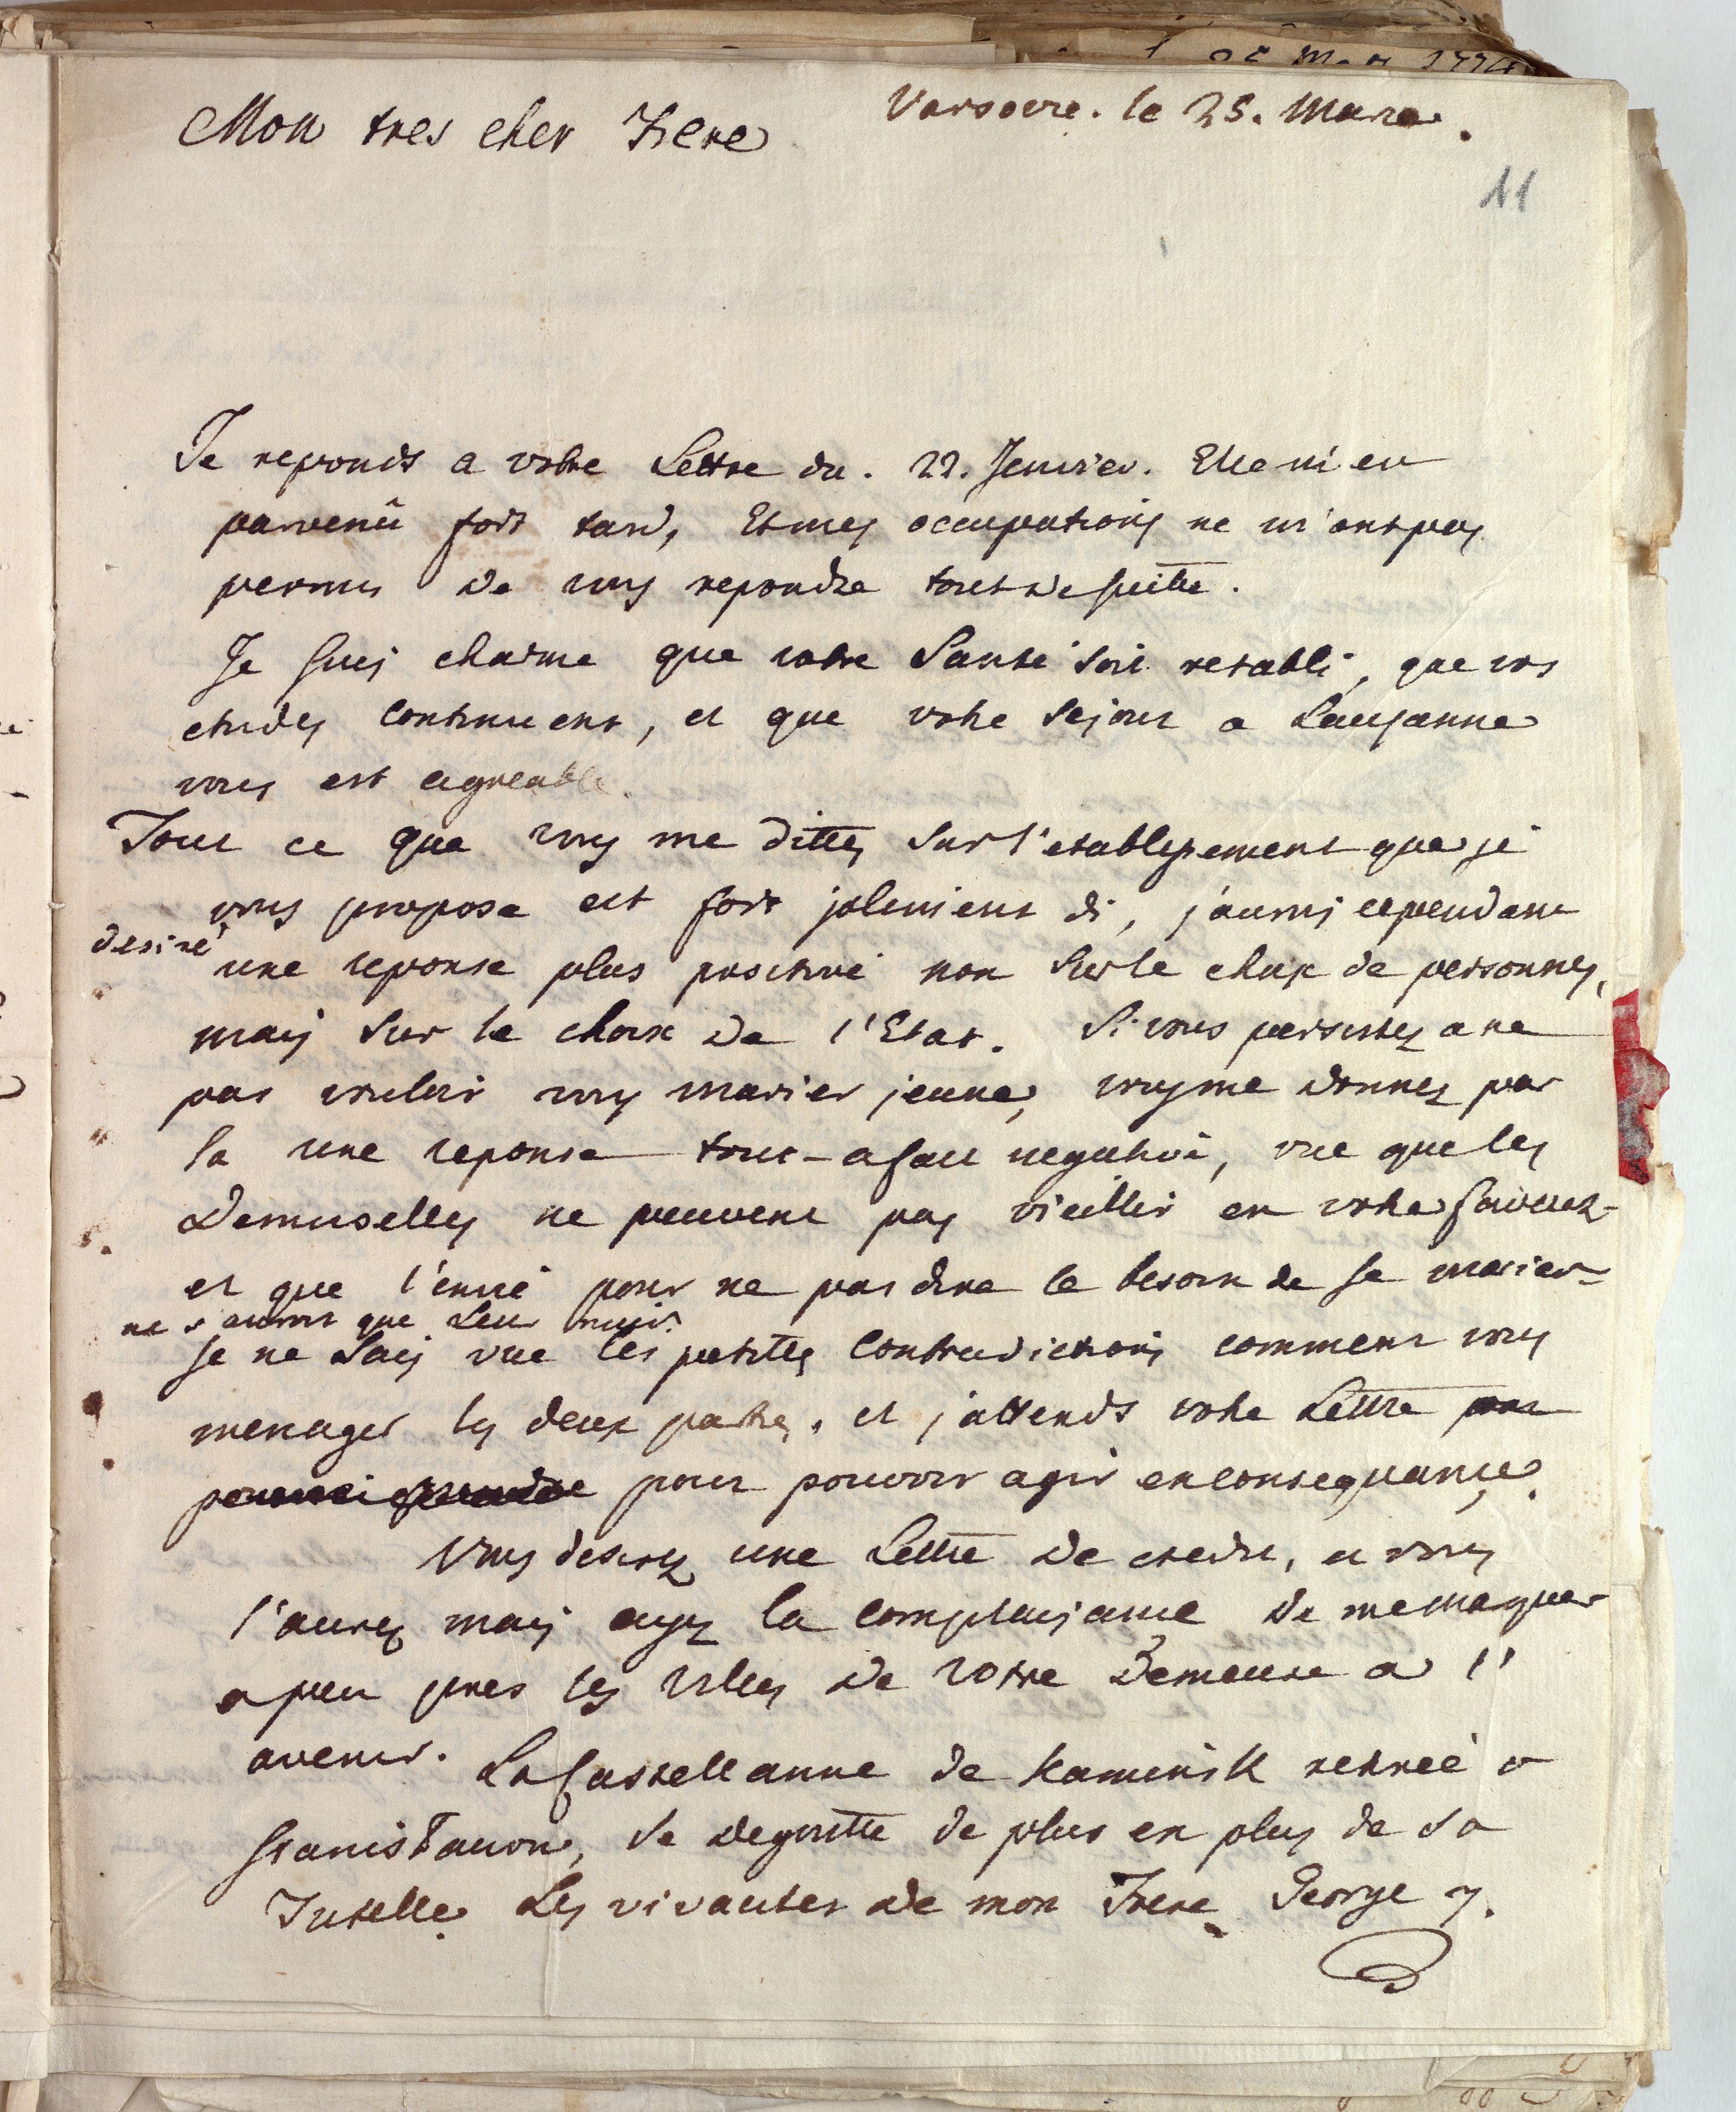 Varsovie. le 25. Mars.
Mon tres cher Frere
11
Je reponds a votre Lettre du. 22. Jenvier. Elle m'en
parvenû fort tard, Et mes occupations ne m'ont pas
permis de vous repondre tout de suitte.
Je suis charme que votre Santé soit retabli, que vos
etudes continuent, et que votre sejour a Lausanne
vous est agreable.
Tout ce que vous me dittes sur l'etablissement que je
vous propose est fort joliment di, j'aurois cependant
desiré une reponse plus positive non sur le choix de personnes,
mais sur le choix de l'Etat. Si vous persistez a ne
pas vouloir vous marier jeune, vous me donnez par
la une reponse tout-a fait negative, vue que les
Demoiselles ne peuvent pas vieillir en votre faveur-
et que l'envie pour ne pas dire le besoin de se marier-
ne sauroit que leur nuir.
Je ne sais vue les petittes contradictions comment vous
menager les deux parties. et j'attends votre Lettre
pour pouvoir agir en consequance.
Vous desirez une Lettre de credit, et vous
l'aurez mais ayez la complaisance de me marquer
a peu pres les villes de votre Demeure a l'
avenir. La Castellanne de Kaminsk retireé a
Stanislauow, se degoutte de plus en plus de sa
Tutelle. Les de mon Frere George